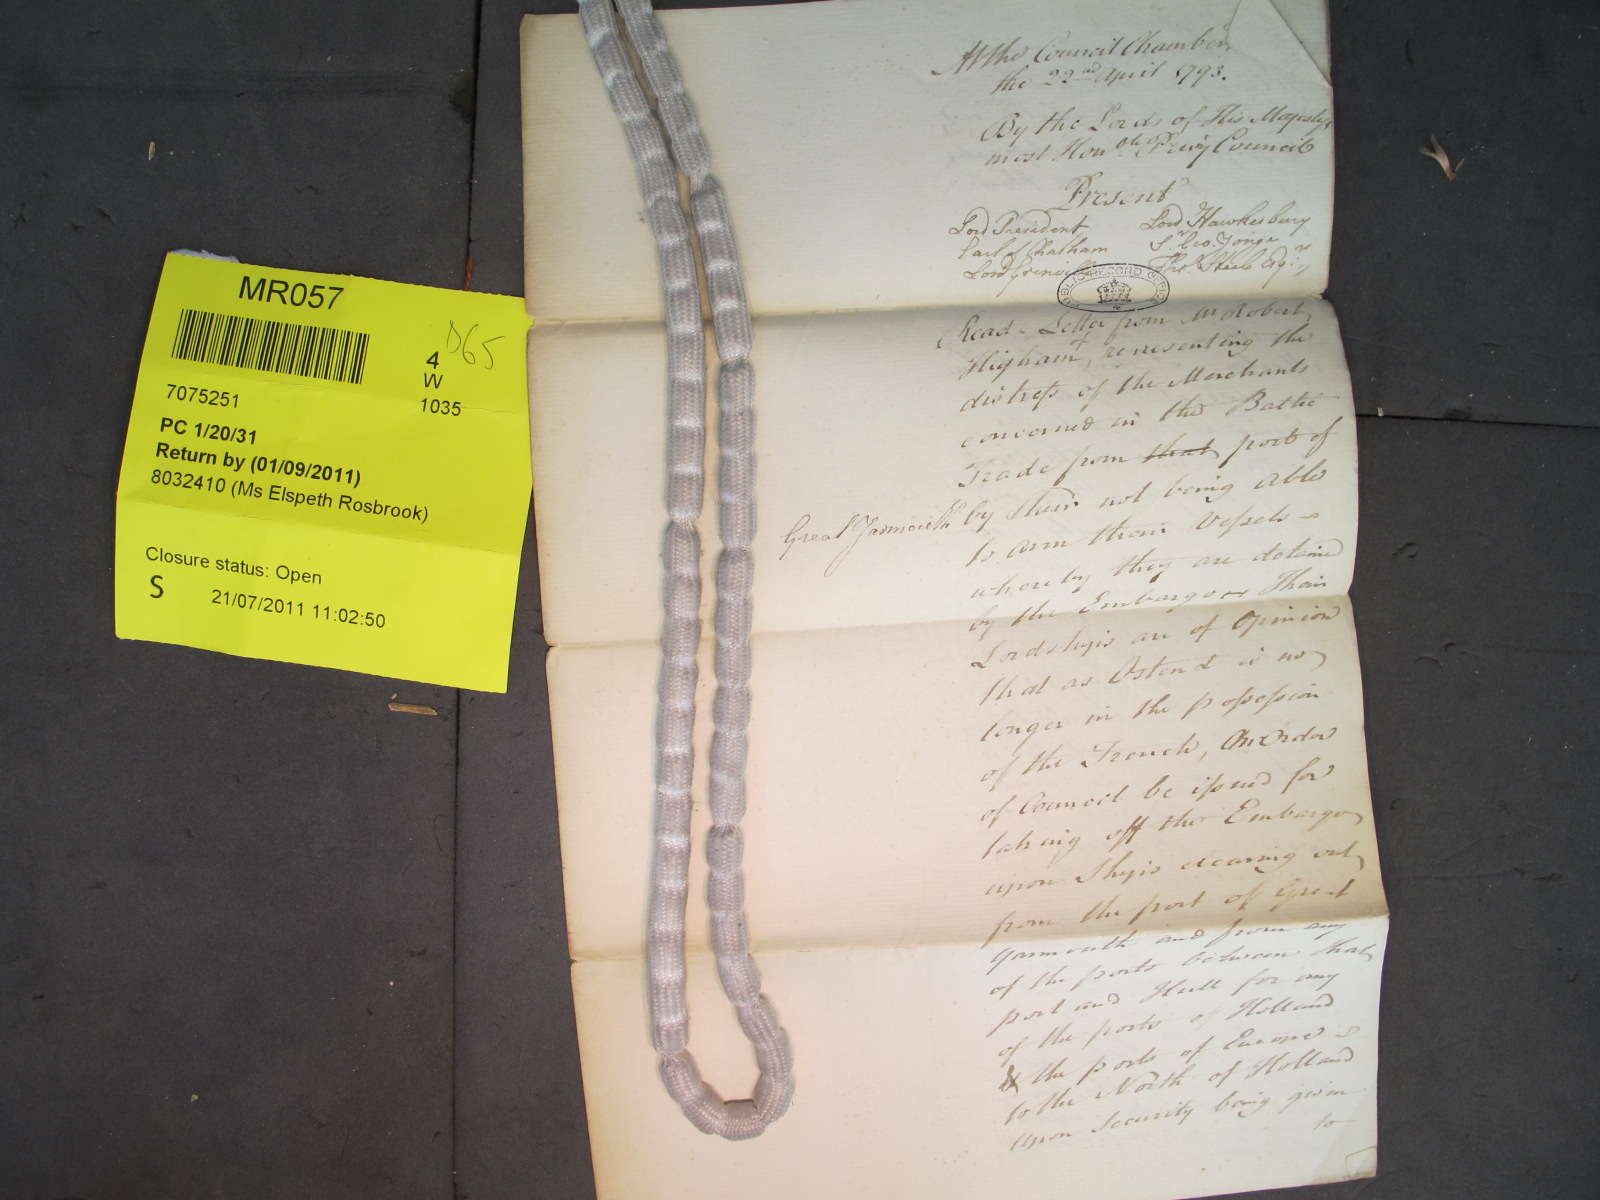 MR057
D65
4
W
1035
7075251
PC 1/20/31
Return by (01/09/2011)
8032410 (Ms Elspeth Rosbrook)
Closure status: Open
S
21/07/2011 11:02:50
At the Council Chamber
the 22nd April 1793.
By the Lords of His Majesty's
most Honoble Privy Council
Present
Lord President Lord Hawkesbury
Earl of Chatham Sr. Geo. Yonge
Lord Grenville Thos. Steele Esqr.
PUBLIC RECORD OFFICE
Read - Letter from Mr Robert
Higham, representing the
distress of the Merchants
concerned in the Baltic
Trade from that port of
Great Yarmouth by their not being able
to arm their Vessels
whereby they are detained
by the Embargo Their
Lordships are of Opinion
that as Ostend is no
longer in the possession
of the French, An Order
of Council be issued for
taking off the Embargo
upon Ships clearing out
from the port of Great
Yarmouth and from any
of the ports between that
port and Hull for any
of the ports of Holland
& the ports of Europe
to the North of Holland
upon Security being given
to